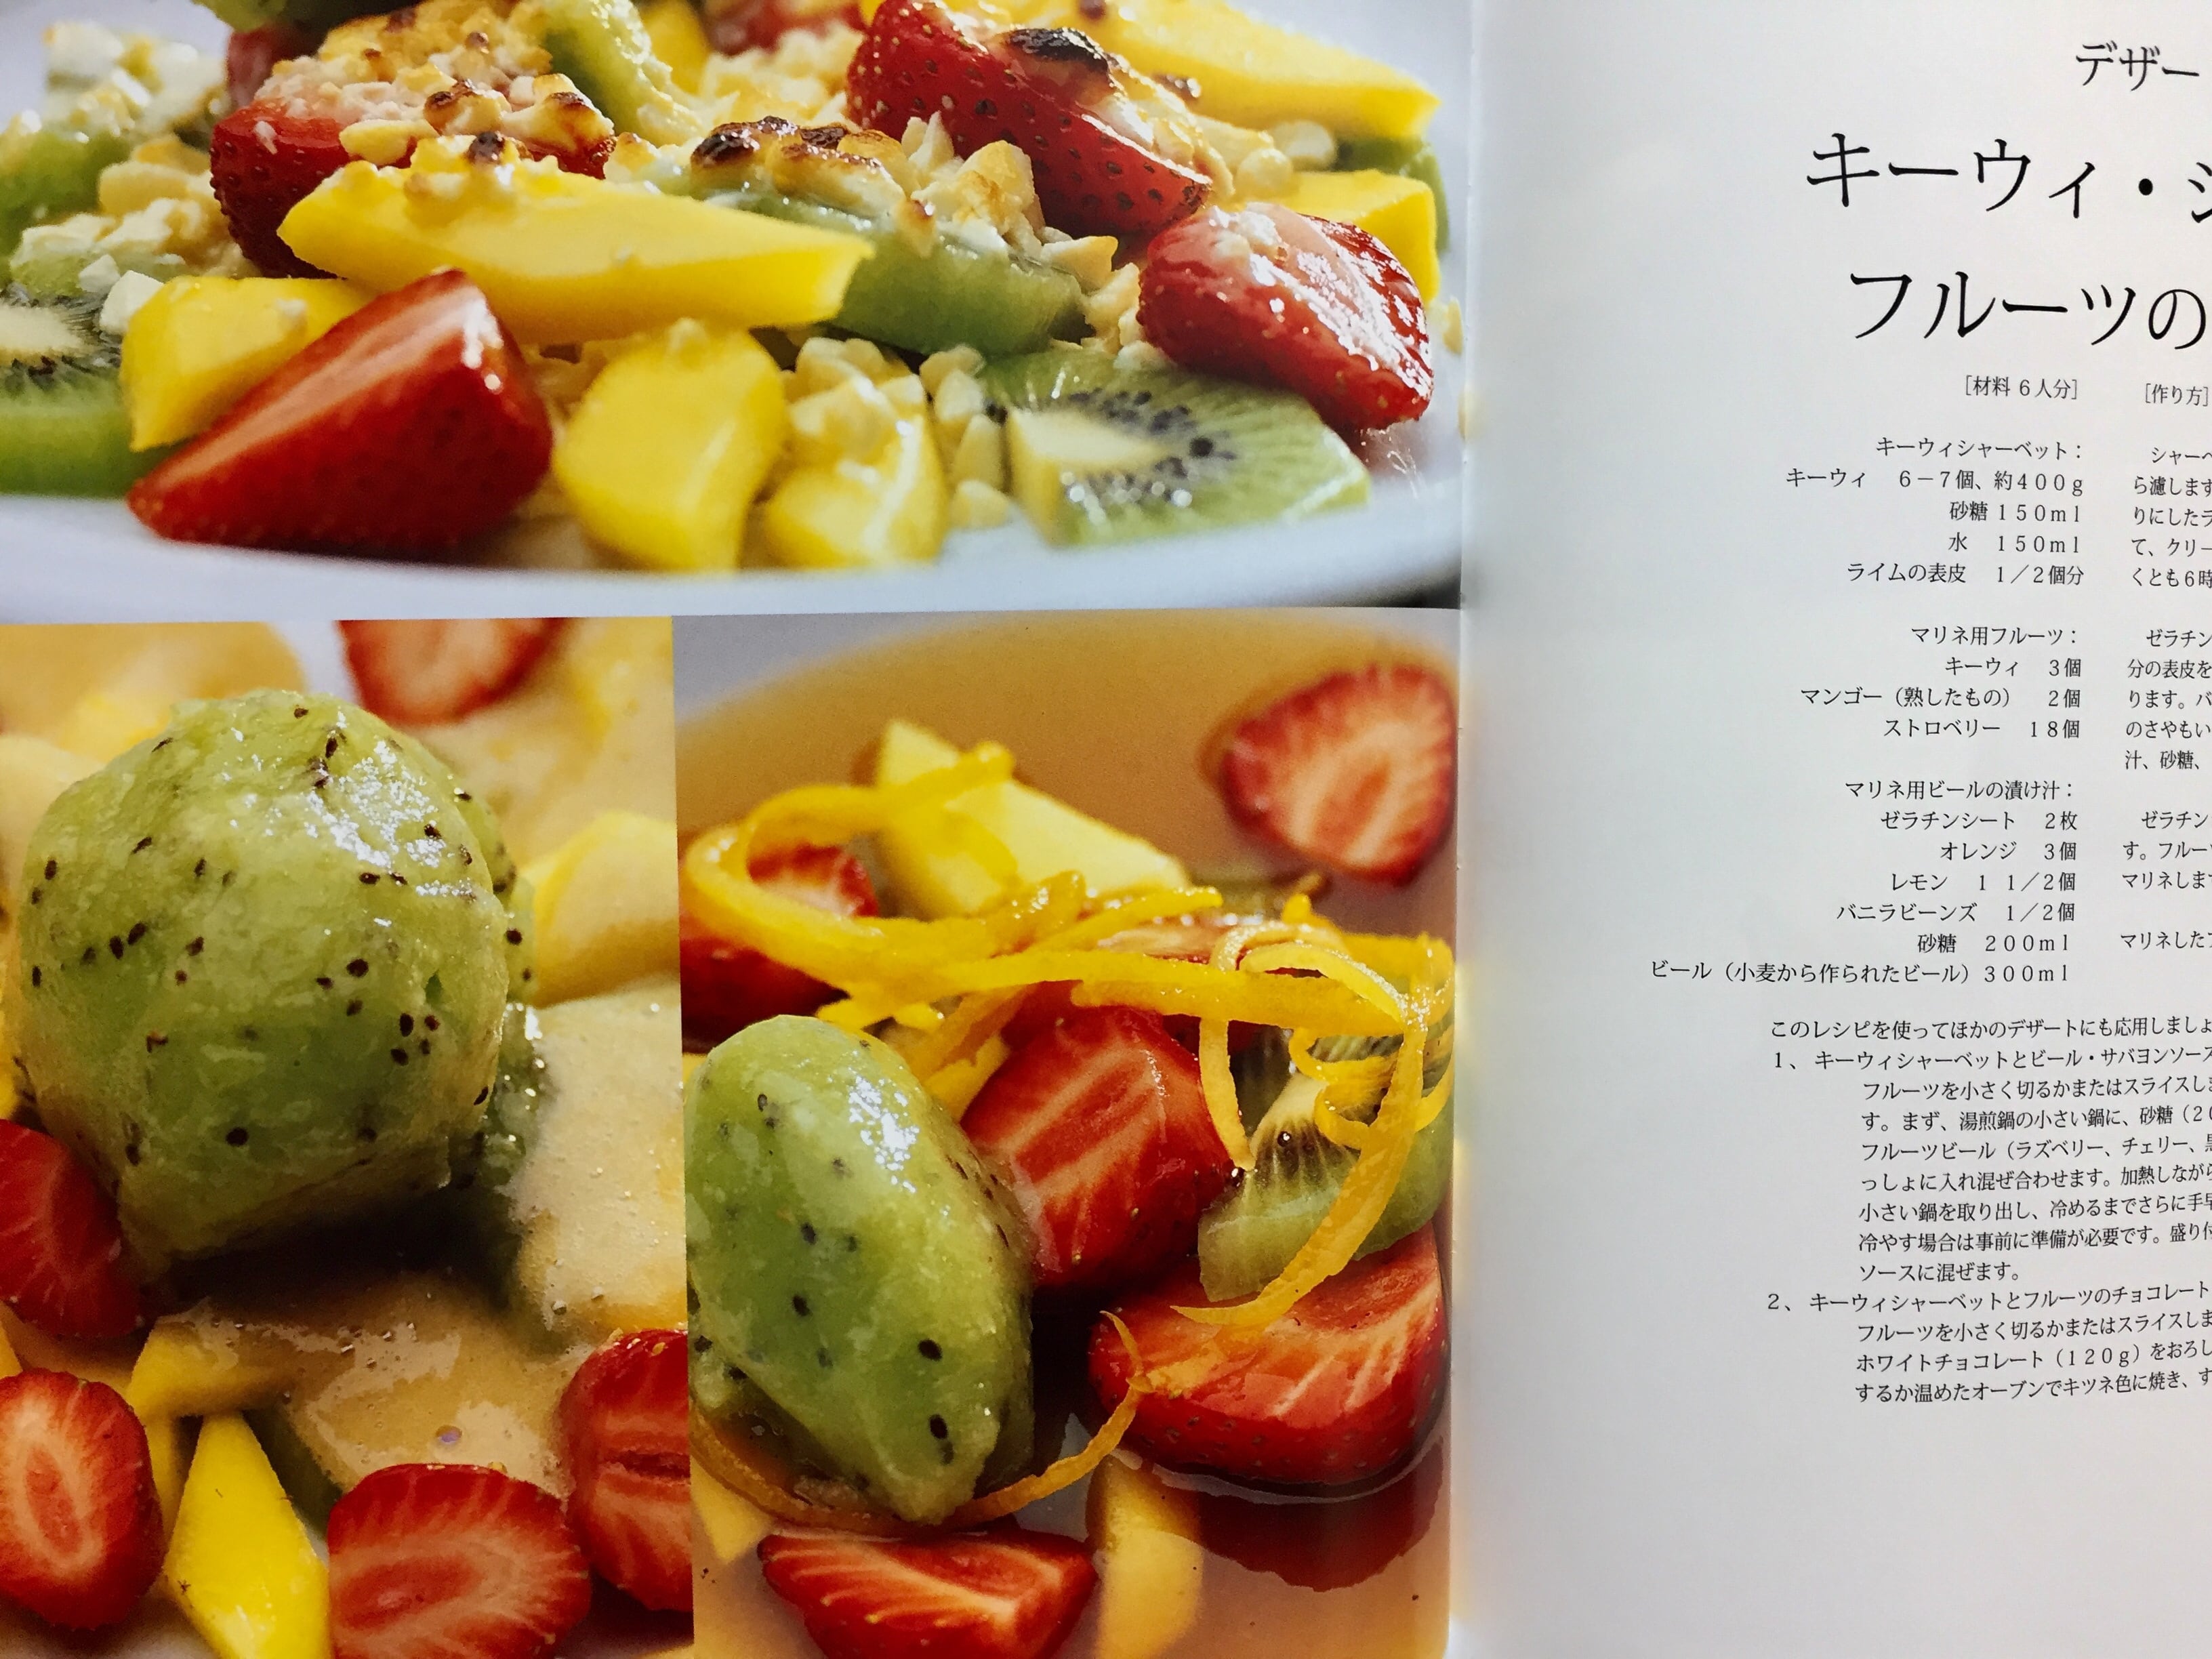 デザー
キーウィ・シ
フルーツの
［材料 6人分］
キーウィシャーベット：
キーウィ 6－7個、約400g
砂糖 150ml
水 150ml
ライムの表皮 1／2個分
マリネ用フルーツ：
キーウィ 3個
マンゴー（熟したもの） 2個
ストロベリー 18個
マリネ用ビールの漬け汁：
ゼラチンシート 2枚
オレンジ 3個
レモン 1 1／2個
バニラビーンズ 1／2個
砂糖 200ml
ビール（小麦から作られたビール）300ml
［作り方］
シャーベ
ら濾します
りにしたラ
て、クリー
くとも6時
ゼラチン
分の表皮を
ります。バ
のさやもい
汁、砂糖、
ゼラチン
す。フルーツ
マリネしま
マリネしたフ
このレシピを使ってほかのデザートにも応用しましょ
1、 キーウィシャーベットとビール・サバヨンソース
フルーツを小さく切るかまたはスライスしま
す。まず、湯煎鍋の小さい鍋に、砂糖（20
フルーツビール（ラズベリー、チェリー、黒
っしょに入れ混ぜ合わせます。加熱しながら
小さい鍋を取り出し、冷めるまでさらに手早
冷やす場合は事前に準備が必要です。盛り付
ソースに混ぜます。
2、 キーウィシャーベットとフルーツのチョコレート
フルーツを小さく切るかまたはスライスしま
ホワイトチョコレート（120g）をおろし
するか温めたオーブンでキツネ色に焼き、す